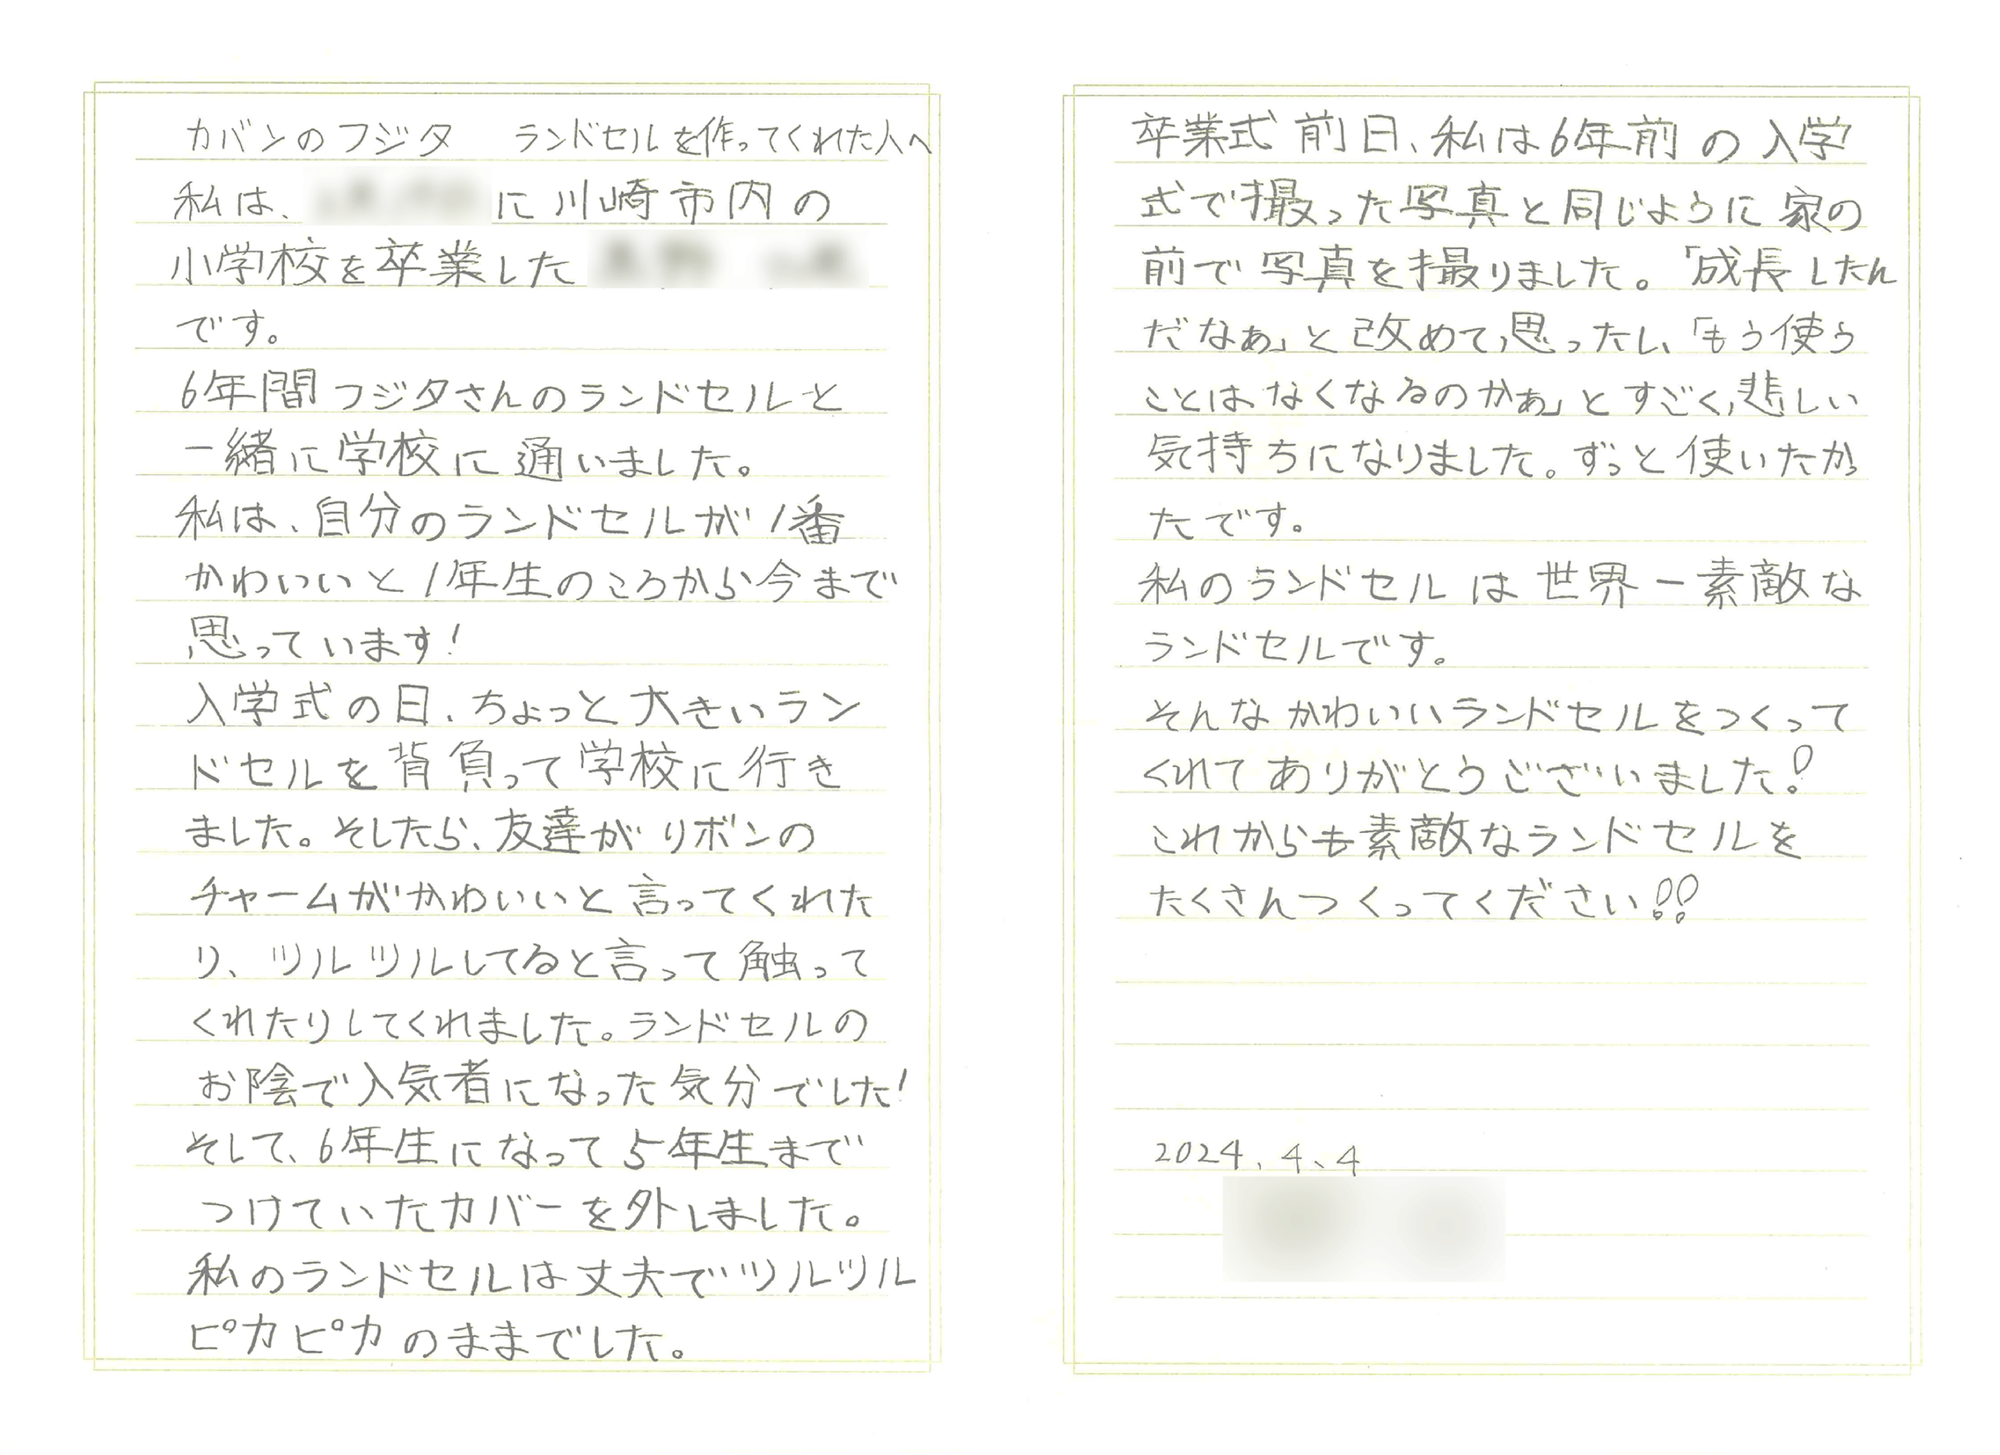 カバンのフジタ　ランドセルを作ってくれた人へ
私は、に川崎市内の
小学校を卒業した
です。
6年間フジタさんのランドセルと
一緒に学校に通いました。
私は、自分のランドセルが1番
かわいいと1年生のころから今まで
思っています!
入学式の日、ちょっと大きいラン
ドセルを背負って学校に行き
ました。そしたら、友達がリボンの
チャームがかわいいと言ってくれた
り、ツルツルしてると言って触って
くれたりしてくれました。ランドセルの
お陰で入気者になった気分でした!
そして、6年生になって5年生まで
つけていたカバーを外しました。
私のランドセルは丈夫でツルツル
ピカピカのままでした。
卒業式前日、私は6年前の入学
式で撮った写真と同じように家の
前で写真を撮りました。「成長したん
だなぁ」と改めて思ったし、「もう使う
ことはなくなるのかぁ」とすごく悲しい
気持ちになりました。ずっと使いたかっ
たです。
私のランドセルは世界一素敵な
ランドセルです。
そんなかわいいランドセルをつくって
くれてありがとうございました!
これからも素敵なランドセルを
たくさんつくってください!!
2024.4.4